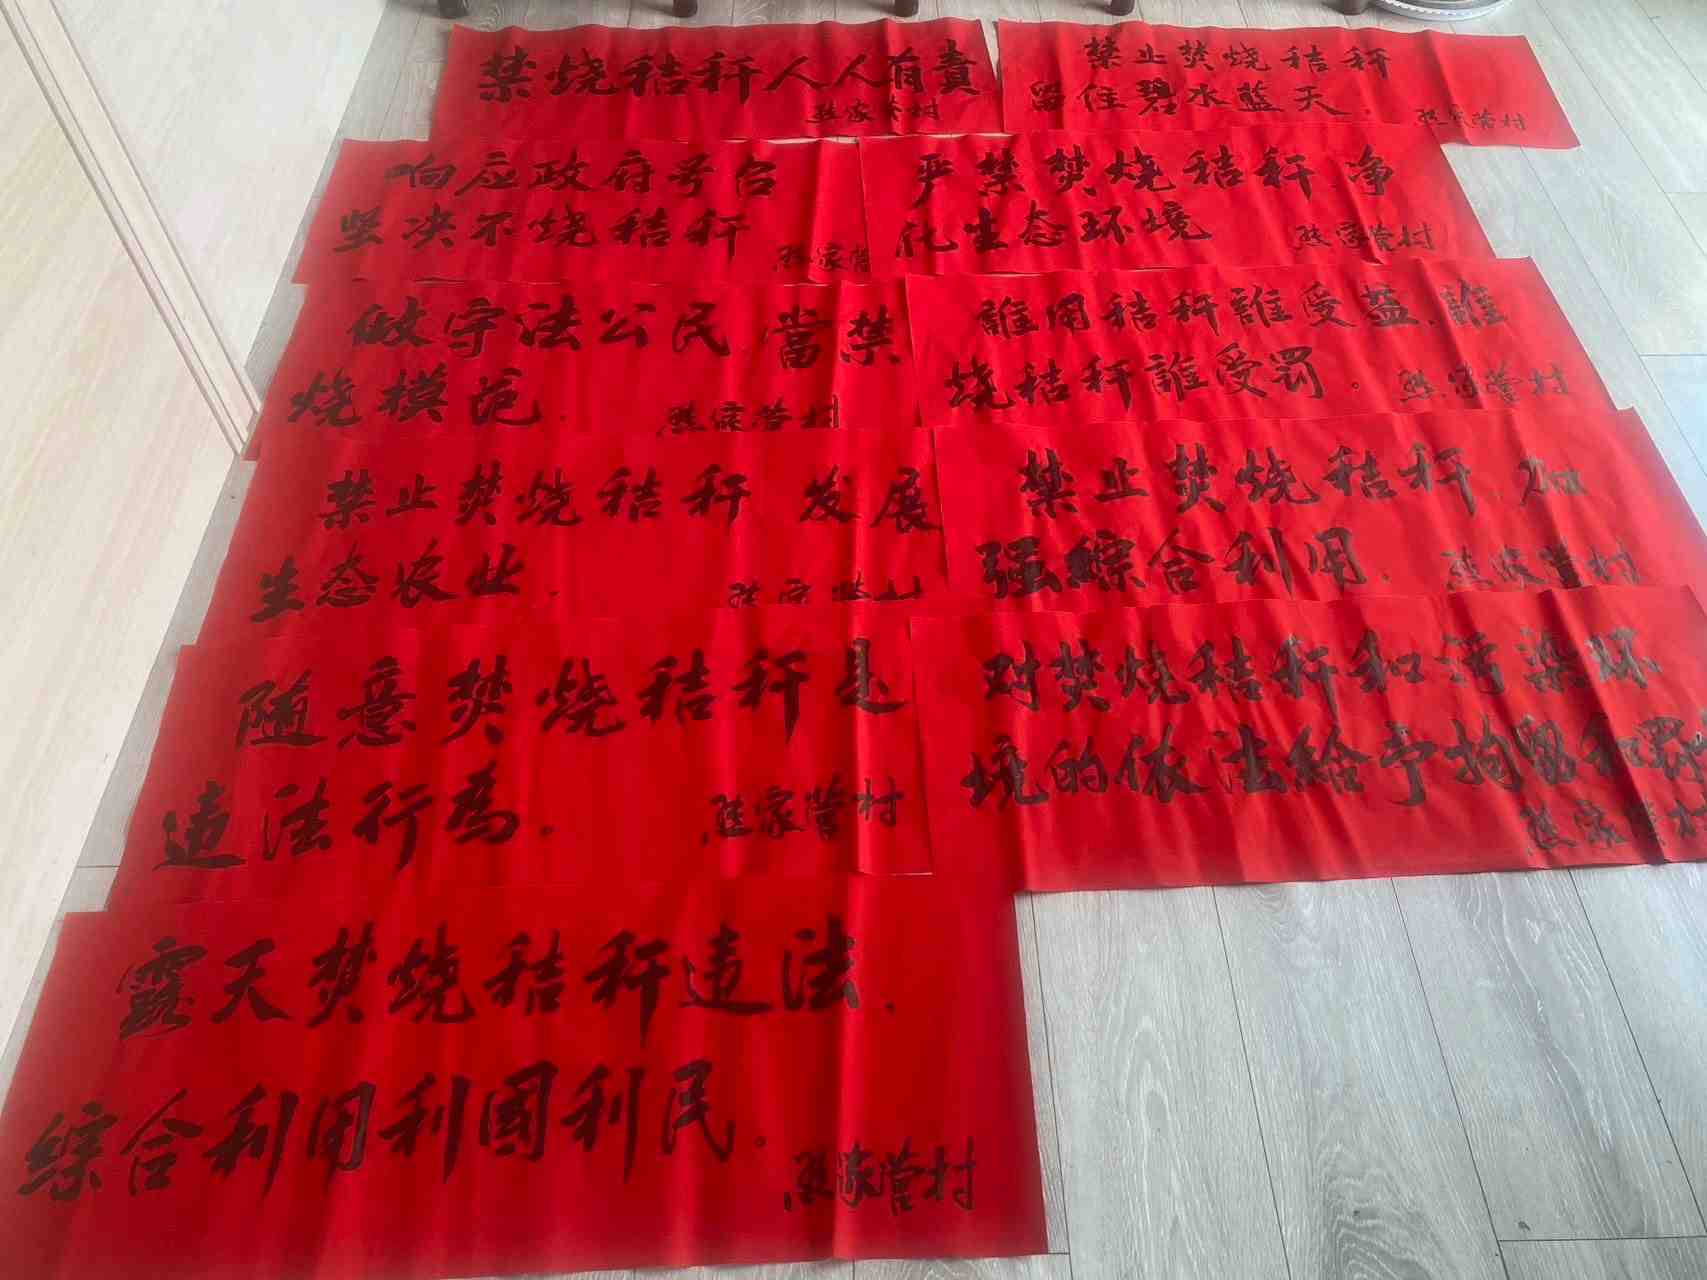 禁烧秸秆人人有责
熊家营村
禁止焚烧秸秆
留住碧水蓝天.
熊家营村
响应政府号召
坚决不烧秸秆
熊家营
严禁焚烧秸秆.净
化生态环境
熊家营村
做守法公民.當禁
烧模范.
熊家营村
誰用秸秆誰受益.誰
烧秸秆誰受罚.
熊家营村
禁止焚烧秸秆 发展
生态农业.
熊家营村
禁止焚烧秸秆.加
强綜合利用.
熊家营村
随意焚烧秸秆是
违法行為.
熊家营村
对焚烧秸秆和污染环
境的依法給予拘留和罪
熊家营村
露天焚烧秸秆违法.
综合利用利國利民.
熊家营村